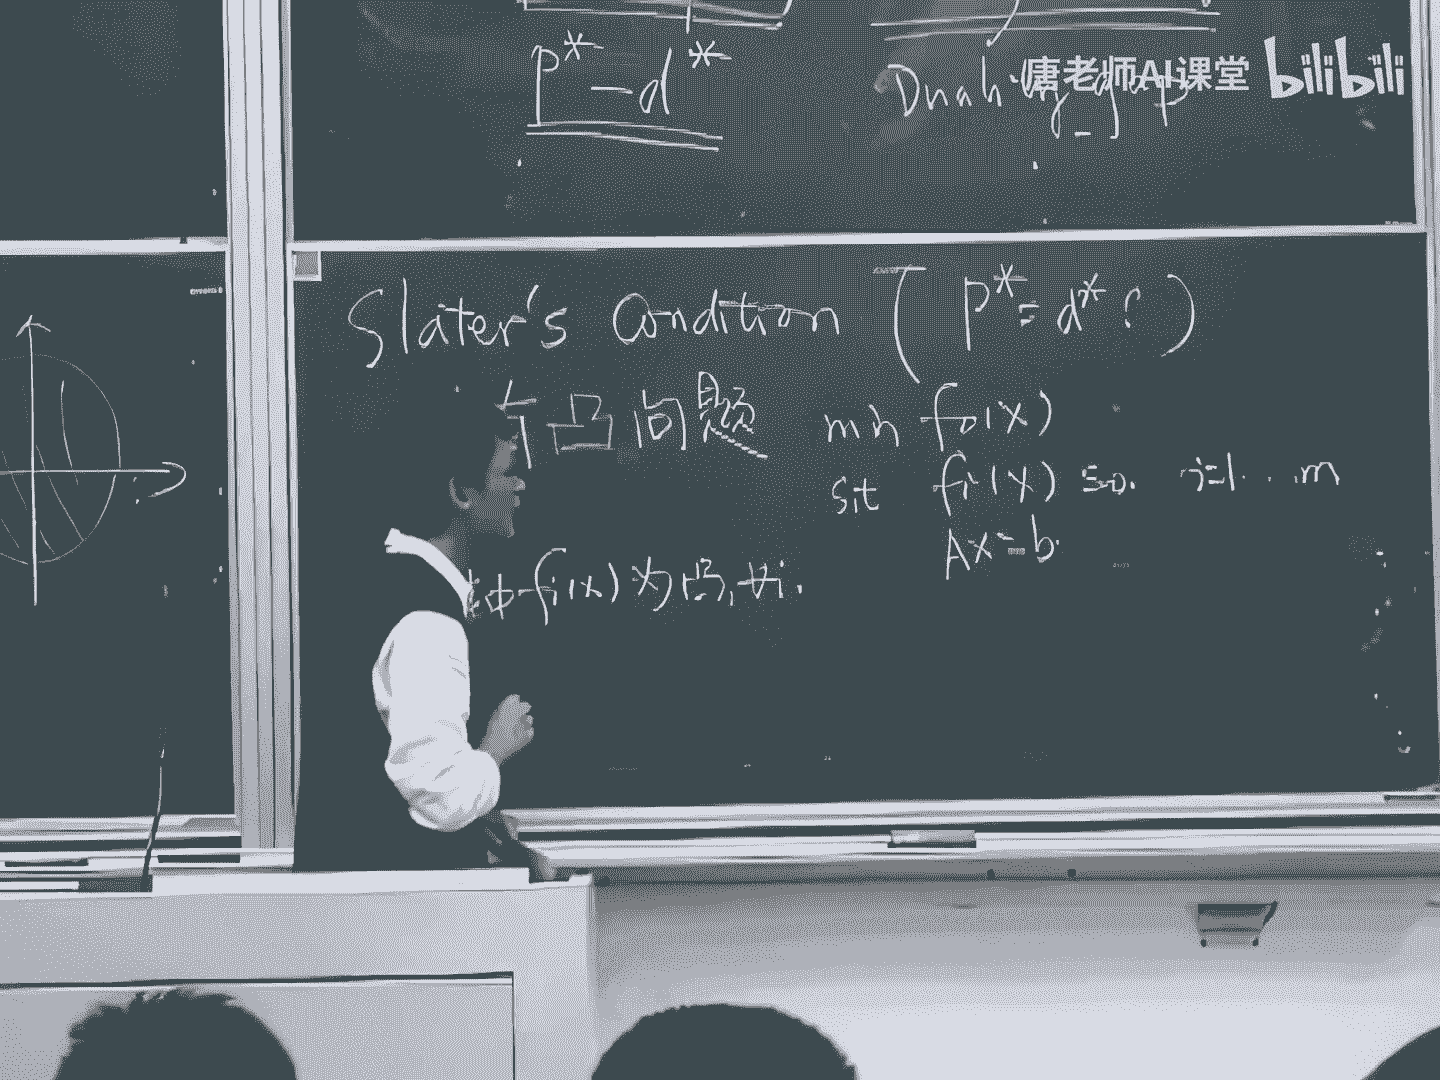 P* - d*
Duality gap
唐老师AI课堂 bilibili
Slater's Condition ( P* = d* ? )
若凸问题 min f₀(x)
s.t fi(x) ≤ 0. i=1...m
Ax = b.
其中 fi(x) 为凸, ∀i.